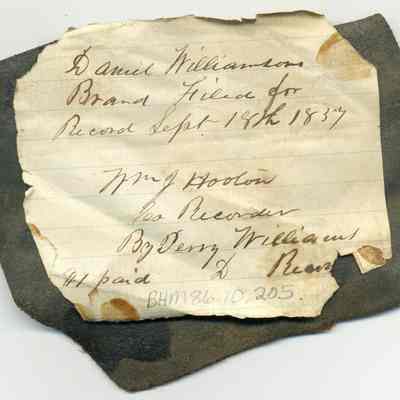 Daniel Williamsons
Brand Filed for
Record Sept. 18th 1857
Wm J Hooton
Co Recorder
By Derry Williams
$1 paid D Recor
BHM86.10.205.